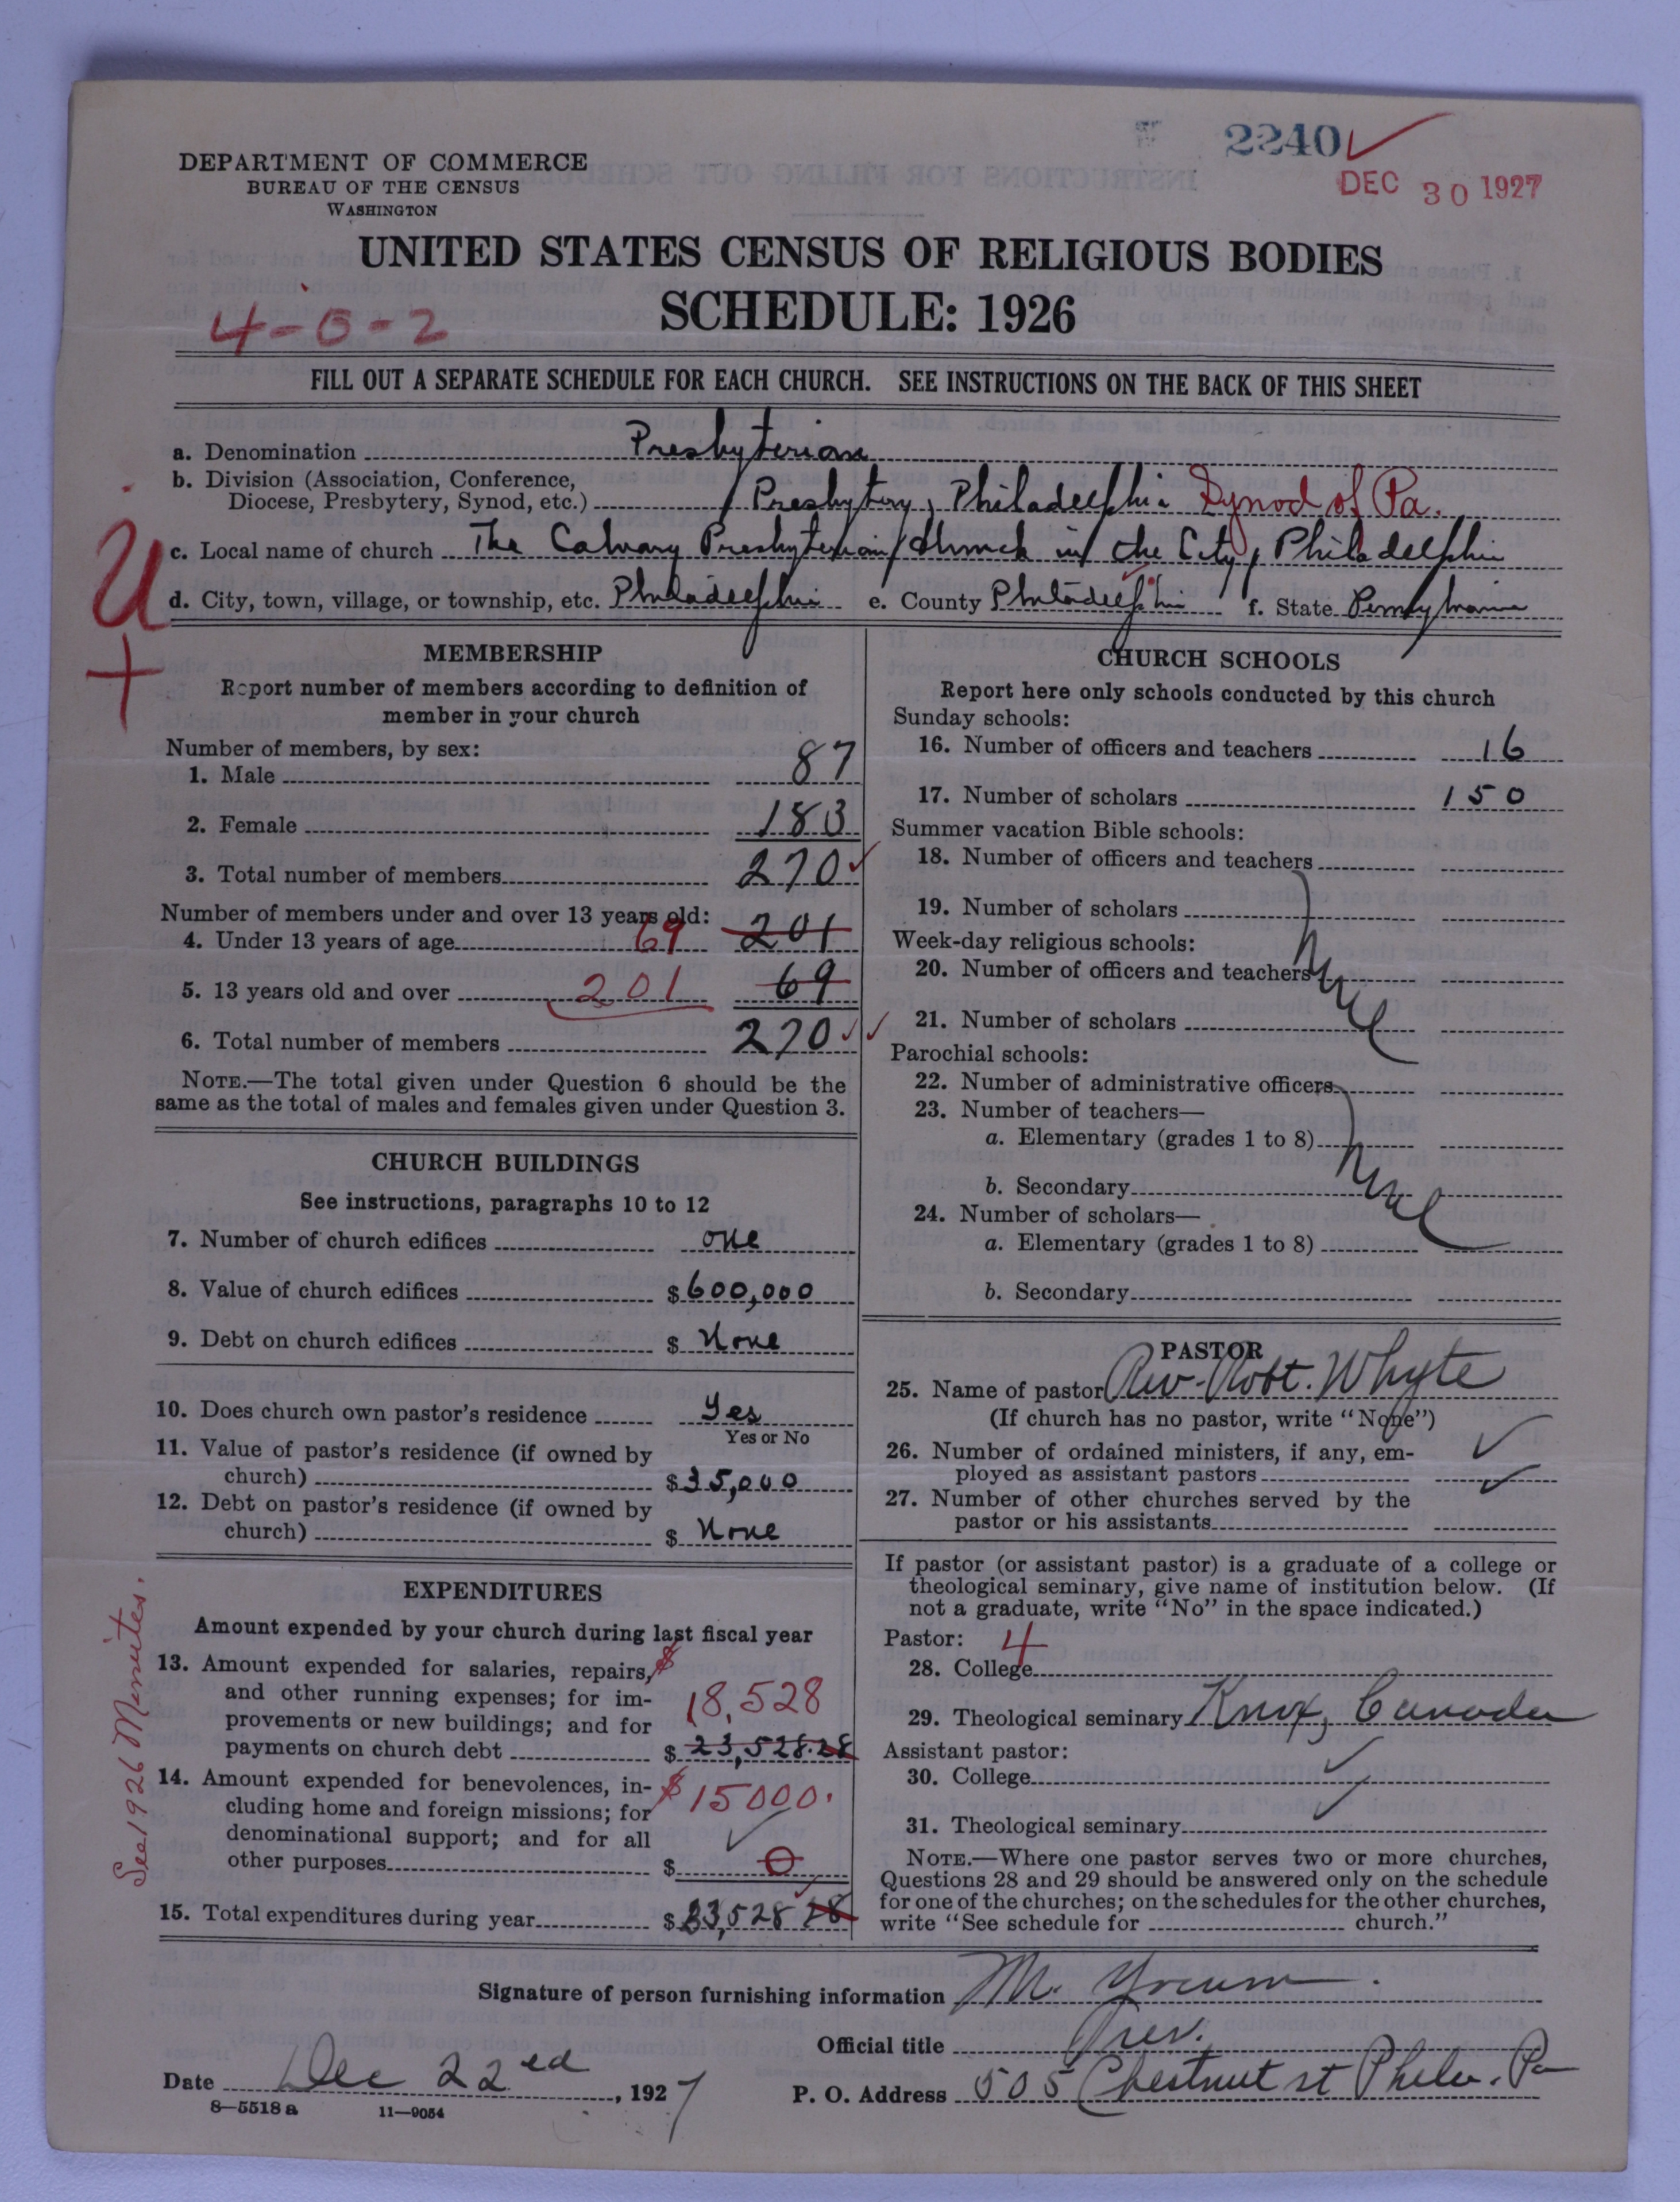 2240
DEC 30 1927
DEPARTMENT OF COMMERCE
BUREAU OF THE CENSUS
WASHINGTON
UNITED STATES CENSUS OF RELIGIOUS BODIES
SCHEDULE: 1926
4-0-2
FILL OUT A SEPARATE SCHEDULE FOR EACH CHURCH. SEE INSTRUCTIONS ON THE BACK OF THIS SHEET
a. Denomination Presbyterian
b. Division (Association, Conference,
Diocese, Presbytery, Synod, etc.) Presbytery, Philadelphia Synod of Pa.
U
c. Local name of church The Calvary Presbyterian Church in the City, Philadelphia
d. City, town, village, or township, etc. Philadelphia e. County Philadelphia f. State Pennsylvania
+
MEMBERSHIP
Report number of members according to definition of
member in your church
Number of members, by sex:
1. Male 87
2. Female 183
3. Total number of members 270
Number of members under and over 13 years old:
4. Under 13 years of age 69 201
5. 13 years old and over 201 69
6. Total number of members 270
NOTE.—The total given under Question 6 should be the
same as the total of males and females given under Question 3.
CHURCH BUILDINGS
See instructions, paragraphs 10 to 12
7. Number of church edifices one
8. Value of church edifices $600,000
9. Debt on church edifices $ None
10. Does church own pastor's residence Yes
Yes or No
11. Value of pastor's residence (if owned by
church) $35,000
12. Debt on pastor's residence (if owned by
church) $ None
EXPENDITURES
Amount expended by your church during last fiscal year
13. Amount expended for salaries, repairs, $
and other running expenses; for im- 18,528
provements or new buildings; and for
payments on church debt $ 23,528.28
14. Amount expended for benevolences, in- $15000.
cluding home and foreign missions; for
denominational support; and for all
other purposes $ 0
15. Total expenditures during year $ 33,528 28
See 1926 Minutes.
CHURCH SCHOOLS
Report here only schools conducted by this church
Sunday schools:
16. Number of officers and teachers 16
17. Number of scholars 150
Summer vacation Bible schools:
18. Number of officers and teachers
19. Number of scholars
Week-day religious schools:
20. Number of officers and teachers
21. Number of scholars
Parochial schools:
22. Number of administrative officers
23. Number of teachers—
a. Elementary (grades 1 to 8)
b. Secondary
24. Number of scholars—
a. Elementary (grades 1 to 8)
b. Secondary
PASTOR
25. Name of pastor Rev. Robt. Whyte
(If church has no pastor, write "None")
26. Number of ordained ministers, if any, em-
ployed as assistant pastors
27. Number of other churches served by the
pastor or his assistants
If pastor (or assistant pastor) is a graduate of a college or
theological seminary, give name of institution below. (If
not a graduate, write "No" in the space indicated.)
Pastor: 4
28. College
29. Theological seminary Knox, Canada
Assistant pastor:
30. College
31. Theological seminary
NOTE.—Where one pastor serves two or more churches,
Questions 28 and 29 should be answered only on the schedule
for one of the churches; on the schedules for the other churches,
write "See schedule for church."
Signature of person furnishing information M. Yocum
Official title
Date Dec 22ed, 1927
P. O. Address 505 Chestnut st Phila. Pa
8—5518 a 11—9054